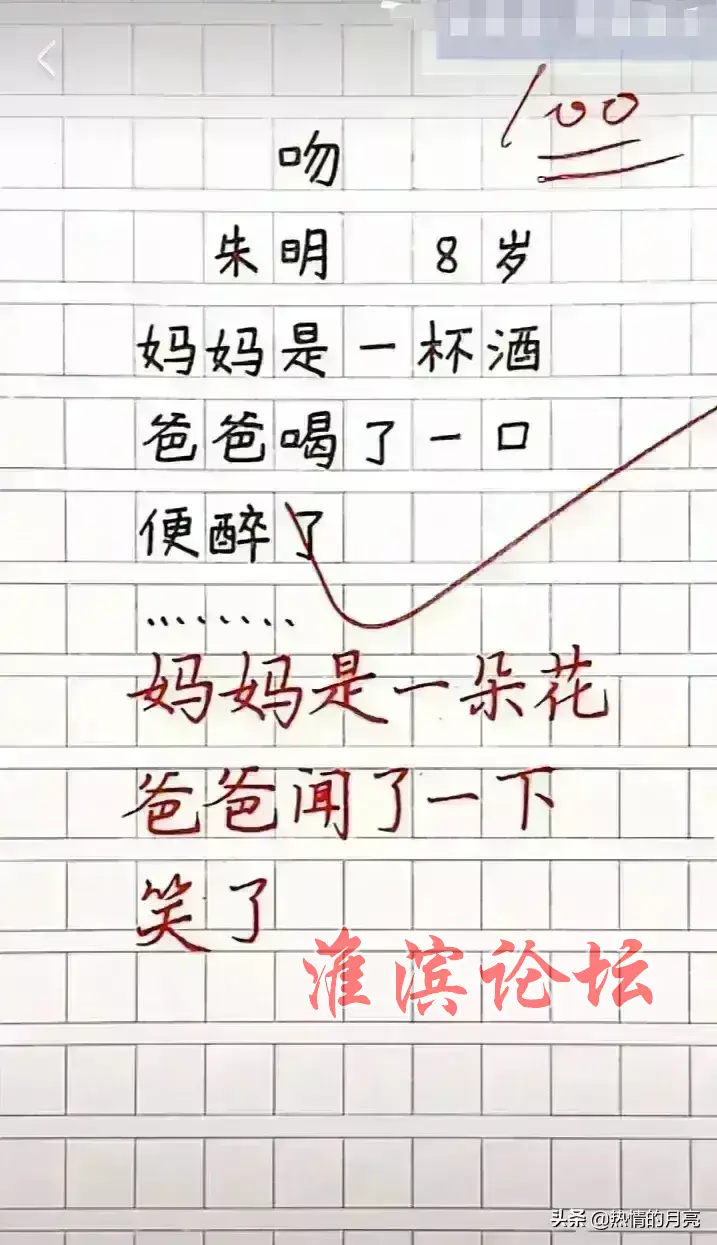 100
吻
朱明 8岁
妈妈是一杯酒
爸爸喝了一口
便醉了
………
妈妈是一朵花
爸爸闻了一下
笑了
淮滨论坛
头条 @热情的月亮